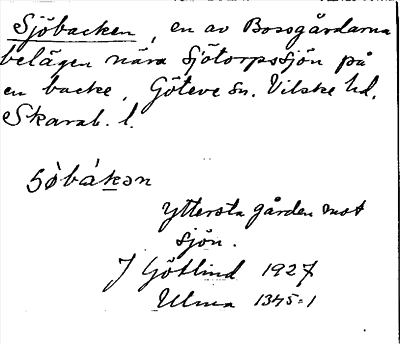 Sjöbacken, en av Bossgårdarna
belägen nära Sjötorpssjön på
en backe, Göteve sn. Vilske hd.
Skarab. l.
yttersta gården mot
sjön.
J Götlind 1927
Ulma 1345:1